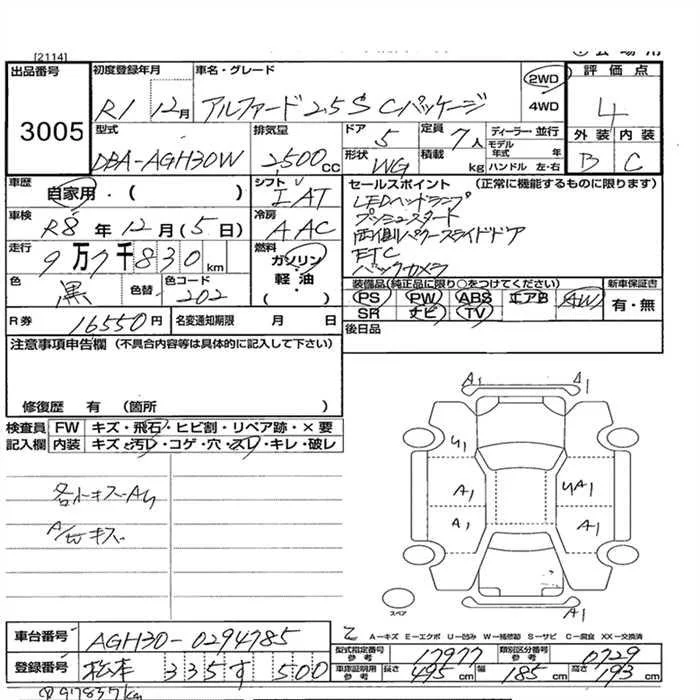 [2114]
出品番号 初度登録年月 車名・グレード 2WD 評価点
3005 R1 12月 アルファード 2.5 S Cパッケージ 4WD 4
型式 排気量 ドア 定員 ディーラー・並行 外装 内装
DBA-AGH30W 2500cc 5 7人 モデル年式 年 B C
形状 積載 kg ハンドル 左・右
WG
車歴 シフト セールスポイント (正常に機能するものに限ります)
自家用・( ) IAT LEDヘッドランプ
車検 冷房 プッシュスタート
R8年12月(5日) AAC 両側パワースライドドア
走行 燃料 ETC
9万7千830km ガソリン・軽油 バックカメラ
( )
色 色替 色コード 装備品(純正品に限り○をつけてください) 新車保証書
黒 202 PS PW ABS エアB AW 有・無
SR ナビ TV
R券 16550円 名変通知期限 月 日 後日品
注意事項申告欄 (不具合内容等は具体的に記入して下さい)
修復歴 有 (箇所 )
検査員 FW キズ・飛石・ヒビ割・リペア跡・×要
記入欄 内装 キズ・汚レ・コゲ・穴・スレ・キレ・破レ
A1 A1
A1 A1
A1 A1
A1
スペア
A-キズ E-エクボ U-凹み W-補修跡 S-サビ C-腐食 XX-交換済
車台番号 AGH30-0294785
型式指定番号 参考 17977 類別区分番号 参考 0729
登録番号 松本 335 す 500
車庫証明用 参考 長さ 495cm 幅 185cm 高さ 193cm